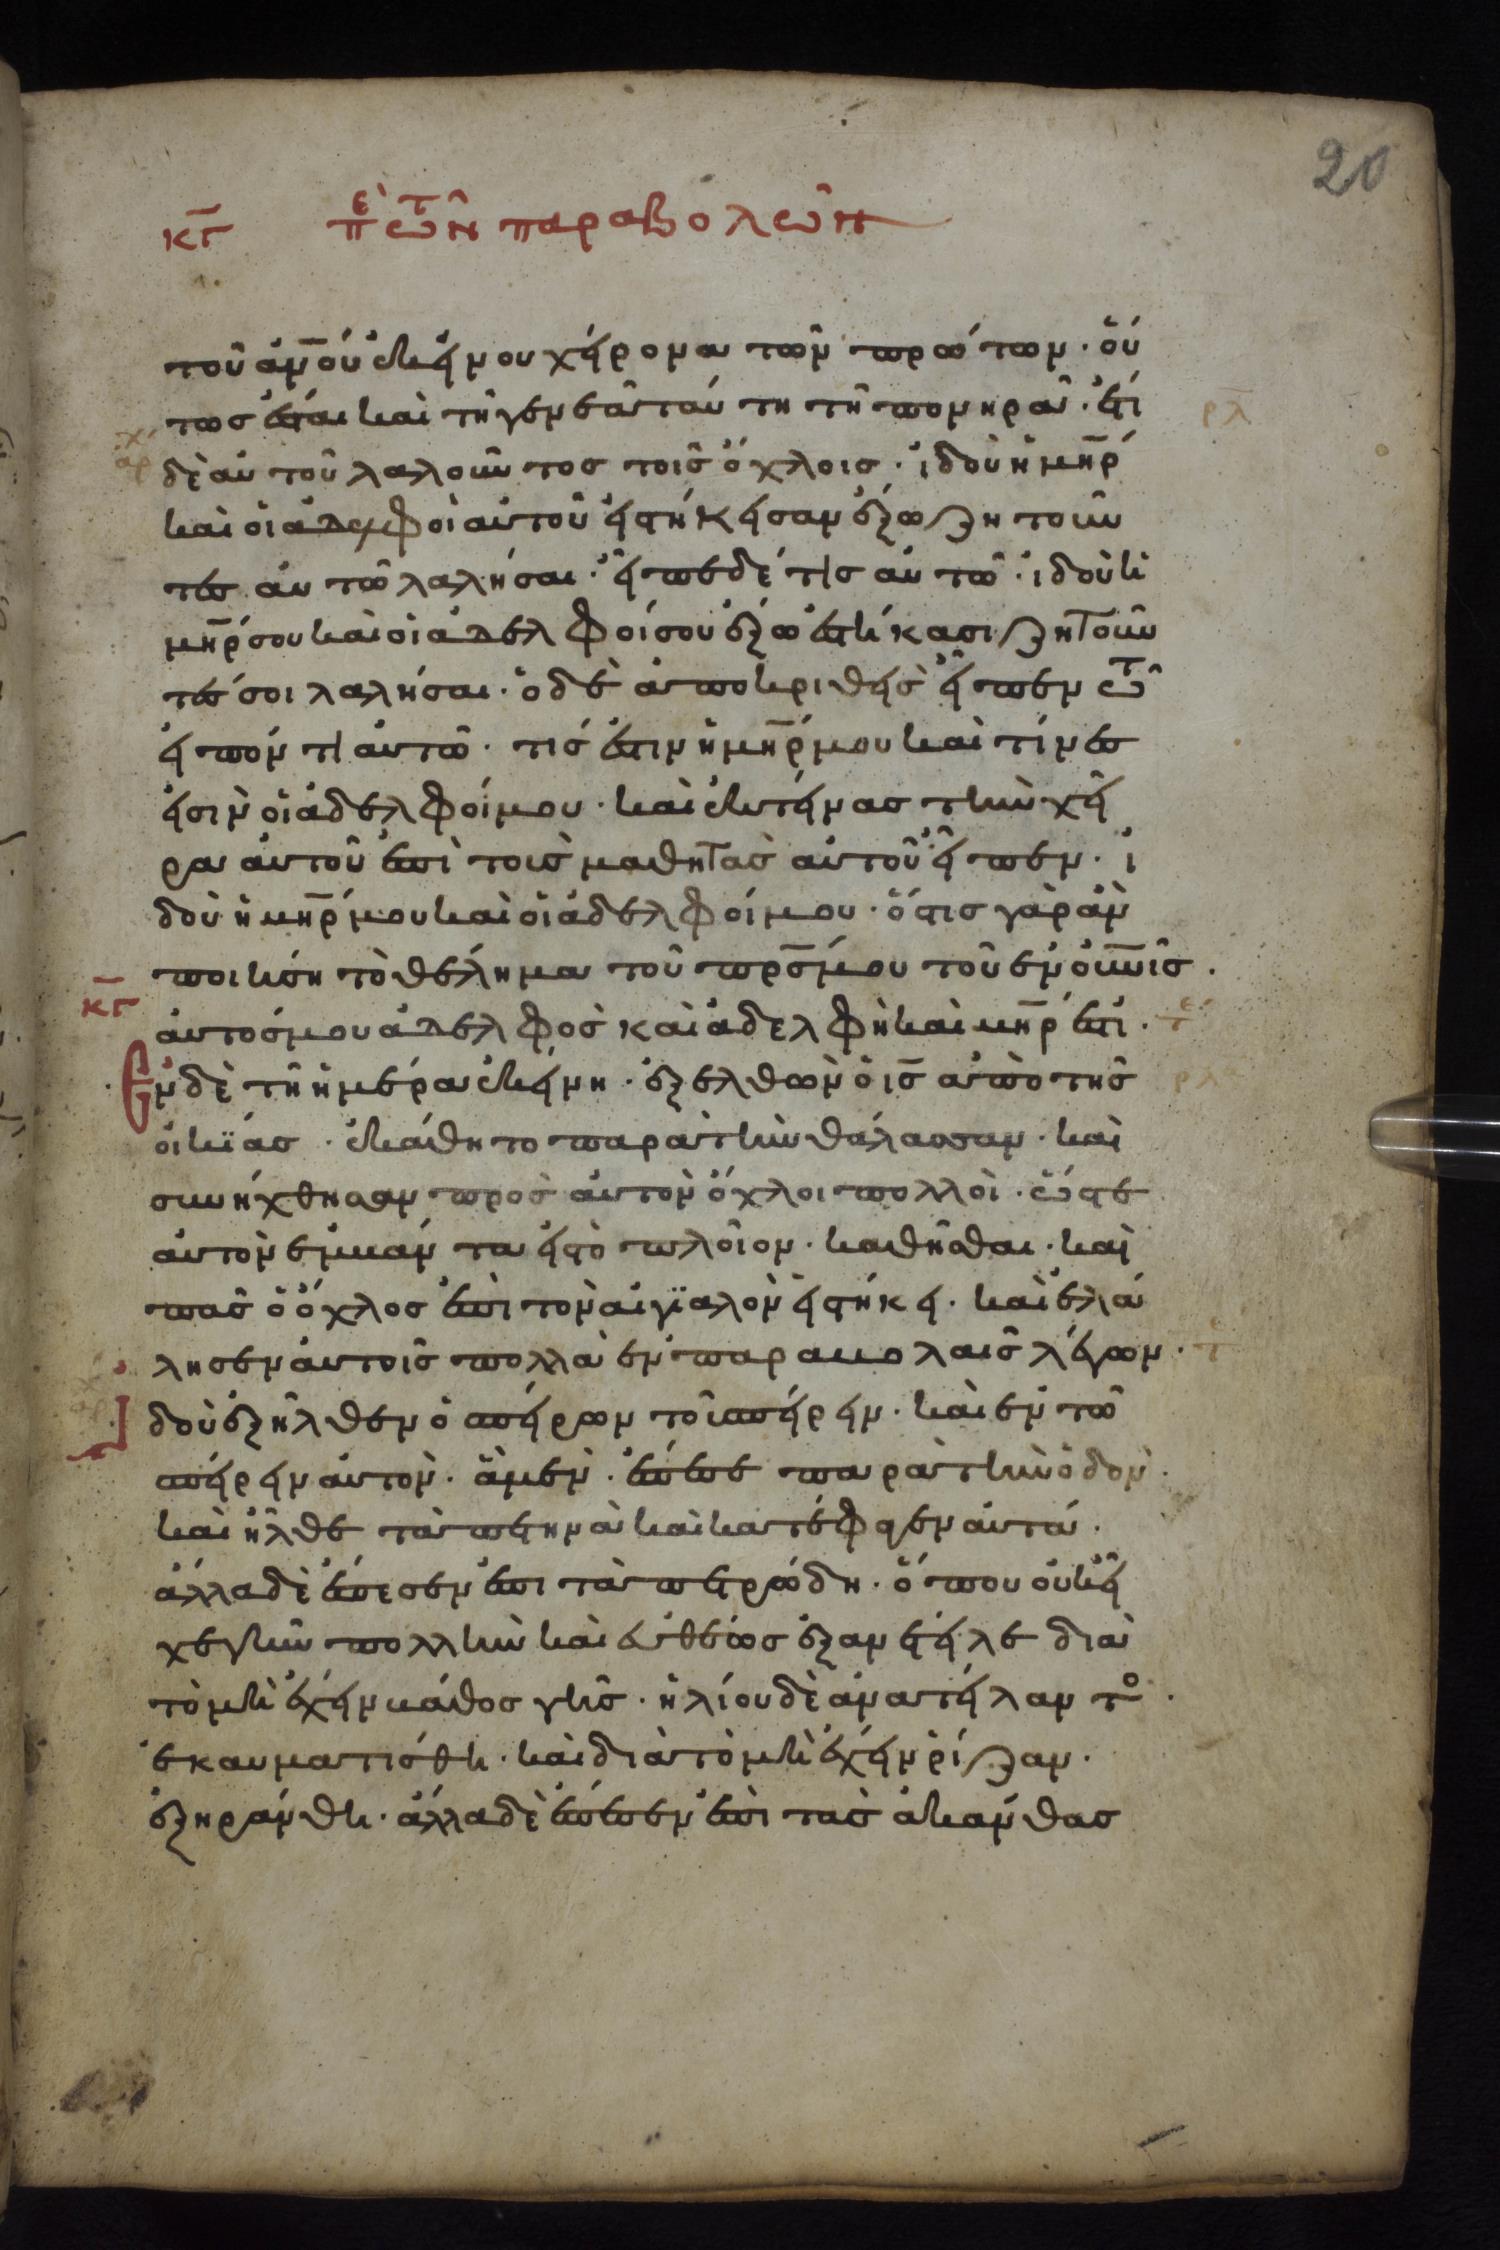 20
κγ πε τῶν παραβολῶν
τοῦ ἀν̅ου ἐκείνου χείρονα τῶν πρώτων · οὕ
τωσ ἔσται καὶ τῆ γενεᾶ ταύτη τῆ πονηρᾶ · ἔτι
ρλ
δὲ αὐτοῦ λαλοῦντοσ τοῖσ ὄχλοισ · ἰδοὺ ἡ μη̅ρ
καὶ οἱ ἀδελφοὶ αὐτοῦ εἱστήκεισαν ἔξω ζητοῦν
τεσ αὐτῶ λαλῆσαι · εἶπε δέ τισ αὐτῶ · ἰδοὺ ἡ
μη̅ρ σου καὶ οἱ ἀδελφοί σου ἔξω ἑστήκασι ζητοῦν
τέσ σοι λαλῆσαι · ὁ δὲ ἀποκριθεὶσ εἶπεν τῶ
εἰπόντι αὐτῶ · τίσ ἐστιν ἡ μη̅ρ μου καὶ τίνεσ
εἰσὶν οἱ ἀδελφοί μου · καὶ ἐκτείνασ τὴν χεῖ
ρα αὐτοῦ ἐπὶ τοὺσ μαθητὰσ αὐτοῦ εἶπεν · ἰ
δοὺ ἡ μη̅ρ μου καὶ οἱ ἀδελφοί μου · ὅστισ γὰρ ἂν
ποιήση τὸ θέλημα τοῦ πρ̅σ μου τοῦ ἐν οὐν̅οῖσ ·
κγ
αὐτόσ μου ἀδελφὸσ καὶ ἀδελφὴ καὶ μη̅ρ ἐστι ·
Ἐν δὲ τῆ ἡμέρα ἐκείνη · ἐξελθὼν ὁ ι̅σ ἀπὸ τῆσ
ρλα
οἰκίασ · ἐκάθητο παρὰ τὴν θάλασσαν · καὶ
συνήχθησαν πρὸσ αὐτὸν ὄχλοι πολλοὶ · ὥστε
αὐτὸν ἐμβάντα εἰσ τὸ πλοῖον · καθῆσθαι · καὶ
πᾶσ ὁ ὄχλοσ ἐπὶ τὸν αἰγιαλὸν εἱστήκει · καὶ ἐλά
λησεν αὐτοῖσ πολλὰ ἐν παραβολαῖσ λέγων ·
Ἰδοὺ ἐξῆλθεν ὁ σπείρων τοῦ σπείρειν · καὶ ἐν τῶ
σπείρειν αὐτὸν · ἃ μὲν · ἔπεσε παρὰ τὴν ὁδὸν ·
καὶ ἦλθε τὰ πετηνὰ καὶ κατέφαγεν αὐτά ·
ἄλλα δὲ ἔπεσεν ἐπὶ τὰ πετρώδη · ὅπου οὐκ εἶ
χε γῆν πολλὴν καὶ εὐθέωσ ἐξανέτειλε διὰ
τὸ μὴ ἔχειν βάθοσ γῆσ · ἡλίου δὲ ἀνατείλαντο ·
ἐκαυματίσθη · καὶ διὰ τὸ μὴ ἔχειν ῥίζαν ·
ἐξηράνθη · ἄλλα δὲ ἔπεσεν ἐπὶ τὰσ ἀκάνθασ